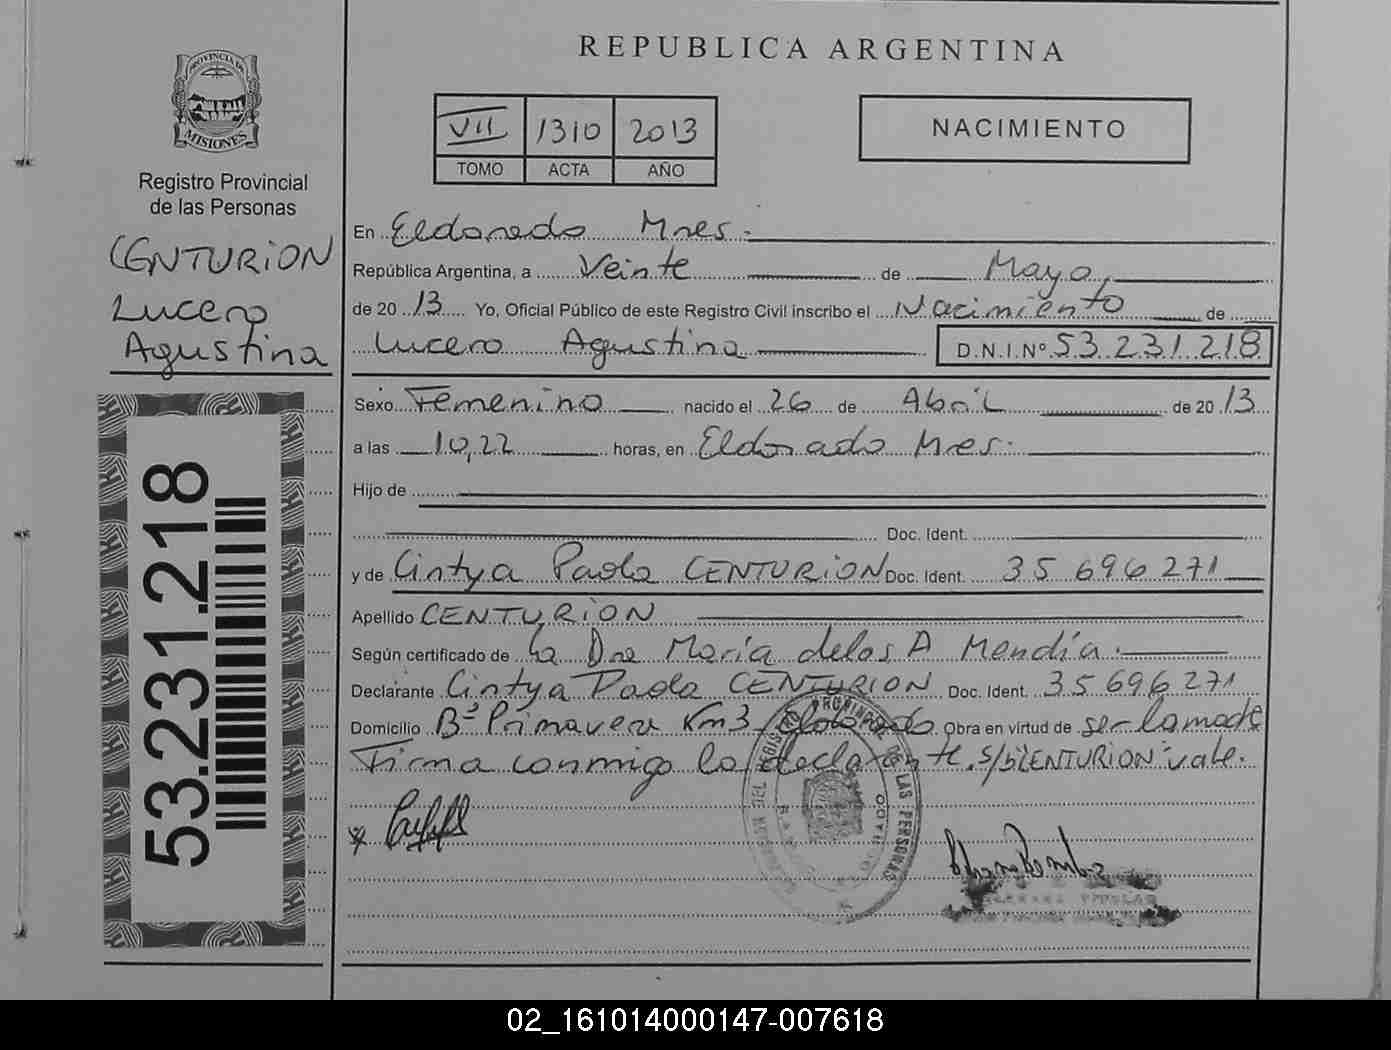 REPUBLICA ARGENTINA
PROVINCIA DE
MISIONES
VII 1310 2013
TOMO ACTA AÑO
NACIMIENTO
Registro Provincial
de las Personas
CENTURION
Lucero
Agustina
53.231.218
En Eldorado Mnes.
República Argentina, a Veinte de Mayo
de 20 13 Yo, Oficial Público de este Registro Civil inscribo el Nacimiento de
Lucero Agustina D.N.I.Nº 53.231.218
Sexo Femenino nacido el 26 de Abril de 20 13
a las 10,22 horas, en Eldorado Mnes.
Hijo de
Doc. Ident.
y de Cintya Paola CENTURION Doc. Ident. 35 696 271
Apellido CENTURION
Según certificado de La Dra María delos A Mendía.
Declarante Cintya Paola CENTURION Doc. Ident. 35 696 271
Domicilio Bº Primavera Km3 Eldorado Obra en virtud de ser la madre
Firma conmigo la declarante. S/b "CENTURION" vale.
REGISTRO PROVINCIAL DE LAS PERSONAS
TITULAR
02_161014000147-007618